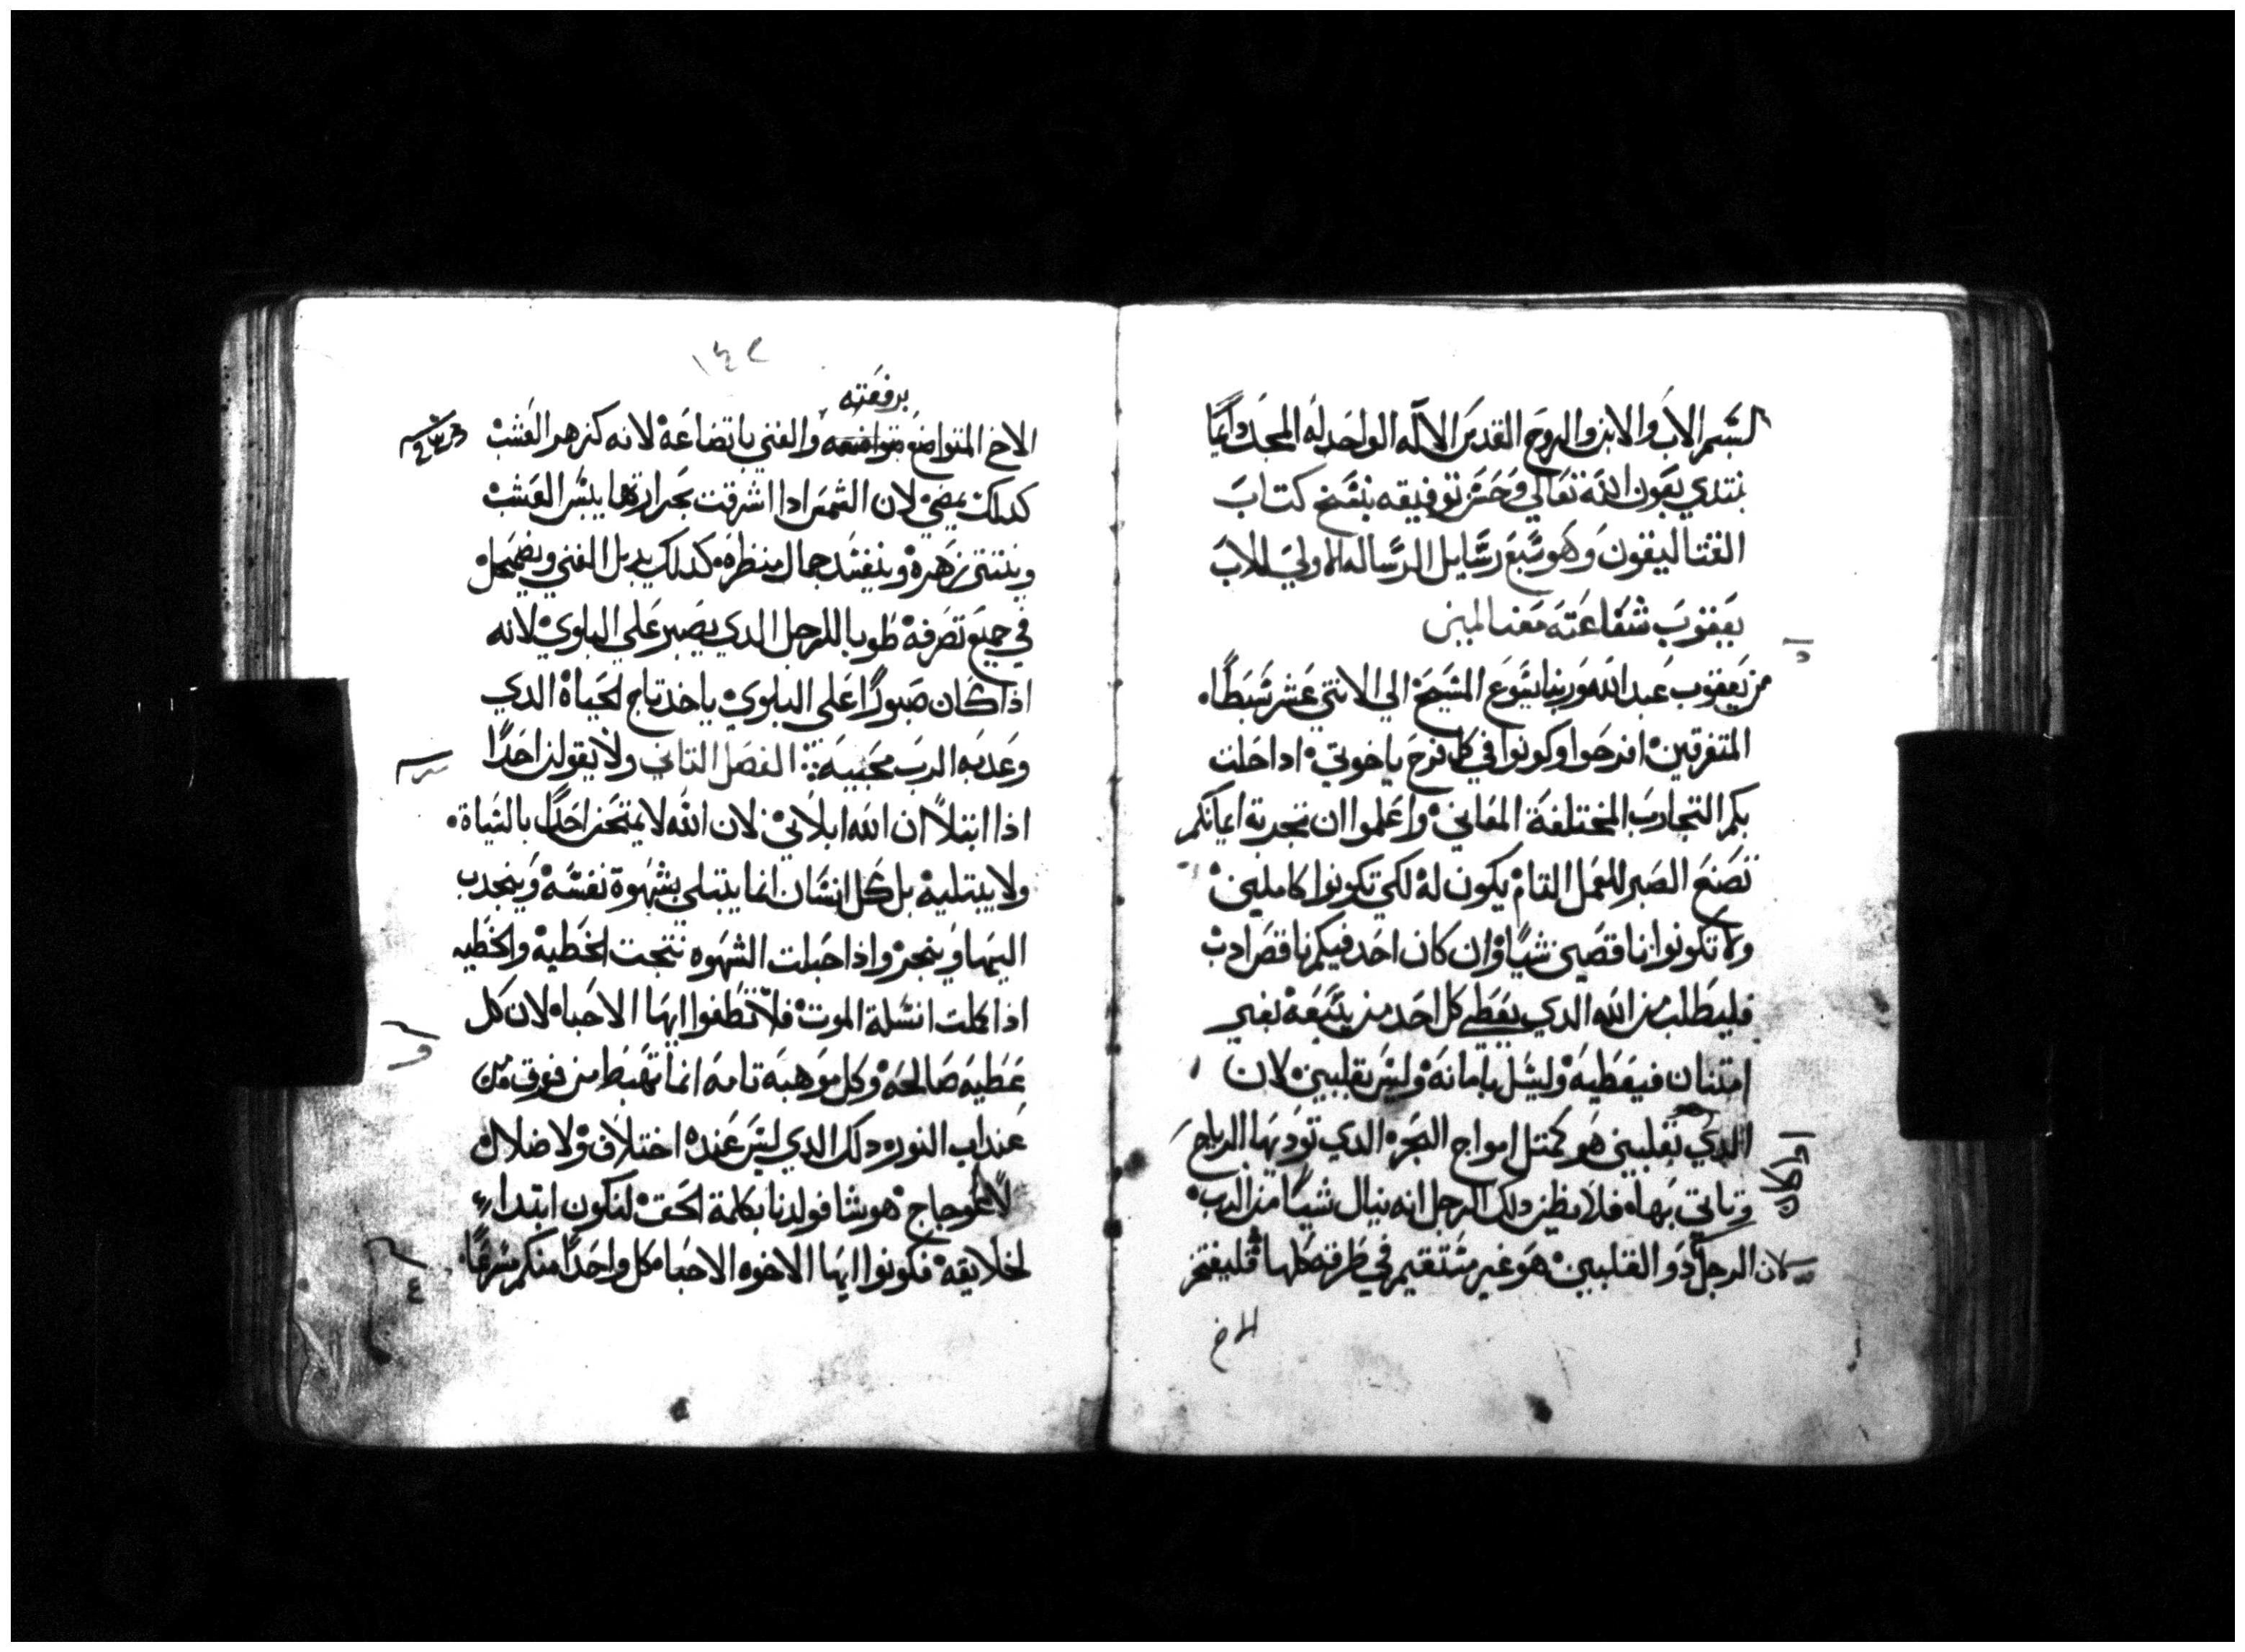 بسم الاب والابن والروح القدس الاله الواحد له المجد دايما
نبتدي بعون الله تعالي وحسن توفيقه بنسخ كتاب
القتاليقون وهو سبع رسايل الرساله الاولي للاب
يعقوب شفاعته معنا امين
من يعقوب عبد الله وربنا يسوع المسيح الي الاثني عشر سبطا
المتفرقين افرحوا وكونوا في كل فرح ياخوتي اذا حلت
بكم التجارب المختلفة المعاني واعلموا ان تجربة ايمانكم
تصنع الصبر للعمل التام يكون له لكي تكونوا كاملين
ولا تكونوا ناقصين شيا وان كان احد فيكم ناقص ادب
فليطلب من الله الذي يعطي كل احد من سعه بغير
امتنان فيعطيه وليسل بامانه وليس بقلبين لان
الذي بقلبين هو كمثل امواج البحر الذي تودبها الرياح
وتاتي بها فلا يظن ذلك الرجل انه ينال شيا من الرب
لان الرجل ذو القلبين هو غير مستقيم في طرقه كلها فليفتخر
الاخ
١٤٢
برفعته
الاخ المتواضع بتواضعه والغني باتضاعه لانه كزهر العشب
كدلك يمضي لان الشمس ادا اشرقت بحرارتها يبس العشب
وينتثر زهره ويفسد جمال منظره كدلك يدبل الغني ويضمحل
في جميع تصرفه طوبا للرجل الدي يصبر علي البلوي لانه
اذا كان صبورا على البلوي ياخد تاج الحياة الدي
وعد به الرب محبيه الفصل التاني ولا يقولن احدا
اذا ابتلا ان الله ابلاني لان الله لا يمتحن احدا بالسياة
ولا يبتليه بل كل انسان انما يبتلي بشهوة نفسه وينجدب
اليها وينجر واذا حبلت الشهوه نتجت الخطيه والخطيه
اذا كملت انسلة الموت فلا تطغوا ايها الاحباه لان كل
عطيه صالحه وكل موهبه تامه انما تهبط من فوق من
عند اب النور دلك الدي ليس عنده اختلاف ولا ضلال
لاعوجاج هو شا فولدنا بكلمة الحق لنكون ابتداء
لخلايقه فكونوا ايها الاخوه الاحبا كل واحدا منكم مسرعا